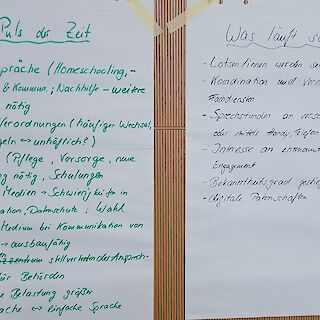 Puls der Zeit
präche (Homeschooling,-
& Kommun.; Nachhilfe – weitere
nötig
erordnungen (häufiger Wechsel,
geln ↔ unhöflich?)
(Pflege, Vorsorge, neue
ng nötig, Schulungen
Medien → Schwierigkeiten in
ation; Datenschutz; Wahl
Medium bei Kommunikation von
→ ausbaufähig
zentrum stellvertretend Ansprech-
für Behörden
Belastung größer
ache ↔ einfache Sprache
Was läuft sc
- Lotsen/innen werden se
- Koordination und Vern
- Sprechstunden an vers
oder mittels Handy, Telefon
- Interesse an
Engagement
- Bekanntheitsgrad gestie
- digitale Patenschaften